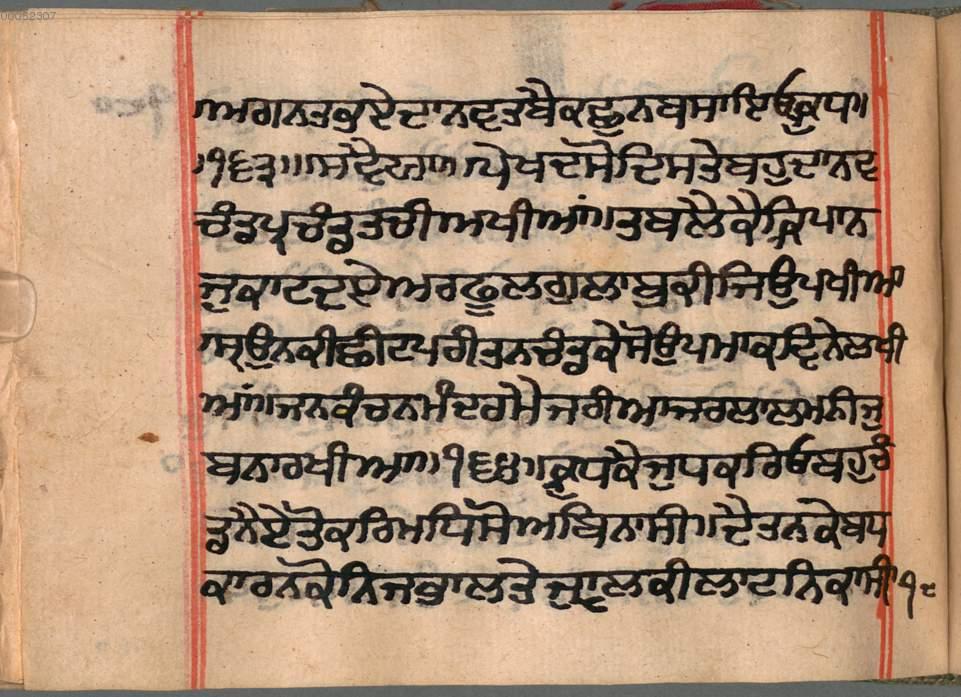 00052307
ਅਗਨਤਕੁਏਦਾਨਵਤਬੈਕਛੁਨਬਸਾਇਓਕੁਪ॥
॥੧੬੩॥ਸ੍ਵੈਯਾ॥ਪੇਖਦਸੋਦਿਸਤੇਬਹੁਦਾਨਵ
ਚੰਡਪ੍ਰਚੰਡਤਚੀਅਖੀਆਂ॥ਤਬਲੈਕੈਕ੍ਰਿਪਾਨ
ਜੁਕਾਟਦਏਅਰਫੂਲਗੁਲਾਬਕੀਜਿਉਪਖੀਆ
ਸ੍ਰਉਨਕੀਛੀਟਪਰੀਤਨਚੰਡਕੇਸੋਉਪਮਾਕਵਿਨੇਲਖੀ
ਆਂ॥ਜਨਕੰਚਨਮੰਦਰਮੈਜਰੀਆਜਰਲਾਲਮਨੀਜੁ
ਬਨਾਰਖੀਅ॥੧੬੪॥ਕ੍ਰੁਪਕੈਜੁਪਕਰਿਓਬਹੁਚੰ
ਡਨੈਏਤੋਕਰਿਮਧਿਸੋਅਬਿਨਾਸੀ॥ਦੈਤਨਕੇਬਧ
ਕਾਰਨਕੋਨਿਜਭਾਲਤੇਜ੍ਵਾਲਕੀਲਾਟਨਿਕਾਸੀ੧੮